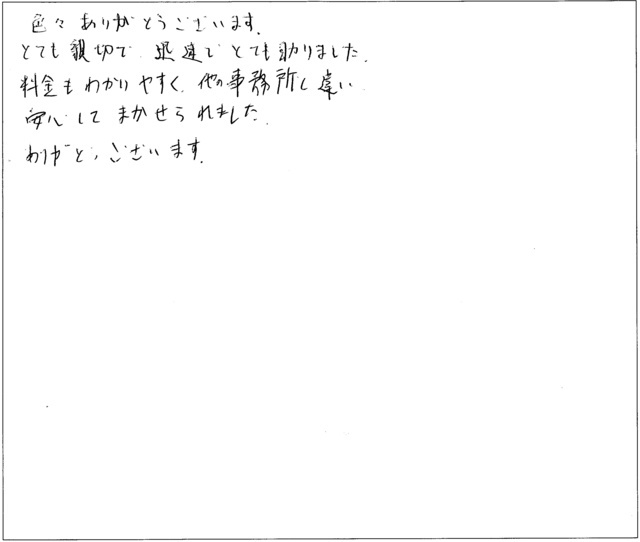 色々ありがとうございます。
とても親切で、迅速でとても助りました。
料金もわかりやすく、他の事務所と違い
安心してまかせられました。
ありがとうございます。